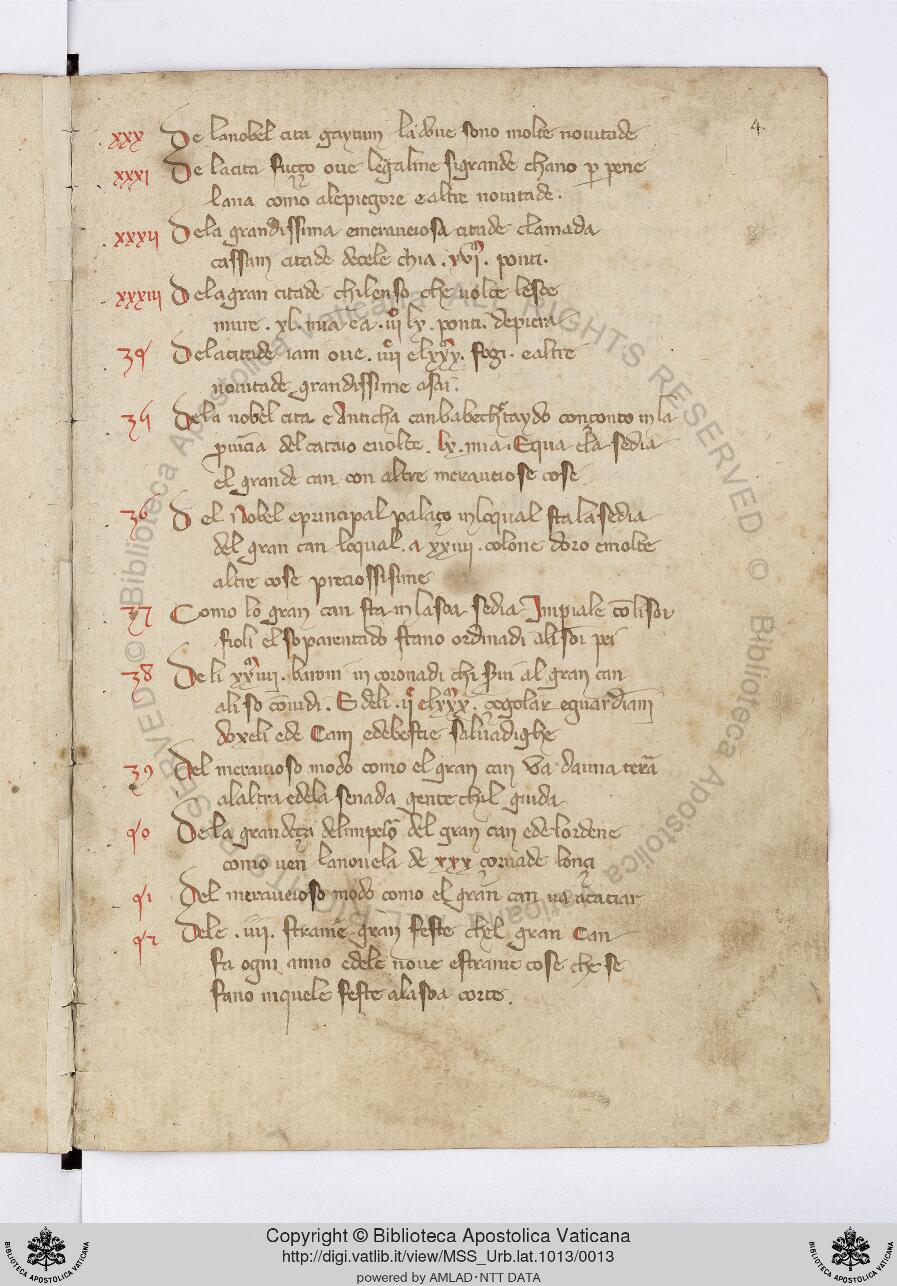 4
xxx De lanobel cita gaytum ladoue sono molte nouitade
xxxi De lacita fuzzo oue legaline sigrande chano p pene
lana como alepiegore ealtre nouitade.
xxxii Dela grandissima emeraueiosa citade clamada
cassam citade decele chia . xvi . ponti.
xxxiii Delagran citade chilenso che uolce lesoe
mure . xl. mia ea . iii lx. ponti. depiera
34 Delacitade iam oue . iiii elxxx. fogi. ealtre
nouitade grandissime asai.
35 Dela nobel cita e Anticha canbabech taydo conzonto in la
prouincia del cataio euolce . lx. mia. Equa ela sedia
el grande can con altre meraueiose cose
36 Del Nobel eprincipal palazo inloqual sta la sedia
del gran can loqual . a xxiiii . colone doro emolte
altre cose preciossisime
37 Como lo gran can sta in lasoa sedia Imperiale co lisoi
fioli el so parentado stano ordinadi ali soi pei
38 De li xxiiii . baroni in coronadi chi serui al gran can
ali so conuidi . E deli . ii elxxx . zogolar eguardiani
doxeli ede Cani edebestie saluadighe
39 Del merauioso modo como el gran can Va dauna tera
alaltra edela senada gente chil guida
40 De la grandeza delimpero del gran can ede lordene
como uen lanouela de xxx zornade lonzi
41 Del meraueioso modo como el gran can ua acaciar
42 Dele . iiii . stranie gran feste chel gran Can
fa ogni anno edele noue estranie cose che se
fano inquele feste alasoa corte .
Copyright © Biblioteca Apostolica Vaticana
http://digi.vatlib.it/view/MSS_Urb.lat.1013/0013
powered by AMLAD•NTT DATA
BIBLIOTECA APOSTOLICA VATICANA
BIBLIOTECA APOSTOLICA VATICANA